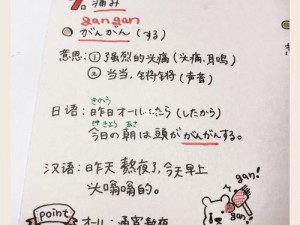 痛み
gangan
がんがん(する)
意思:①强烈的头痛(头痛、耳鸣)
②当当,锵锵(声音)
きのう
日语:昨日オールしたら(したから)
けさ きょう あさ
今日の朝は頭ががんがんする。
汉语:昨天熬夜了,今天早上
头嗡嗡的。
gan!
gan!
point
オール:通宵熬夜